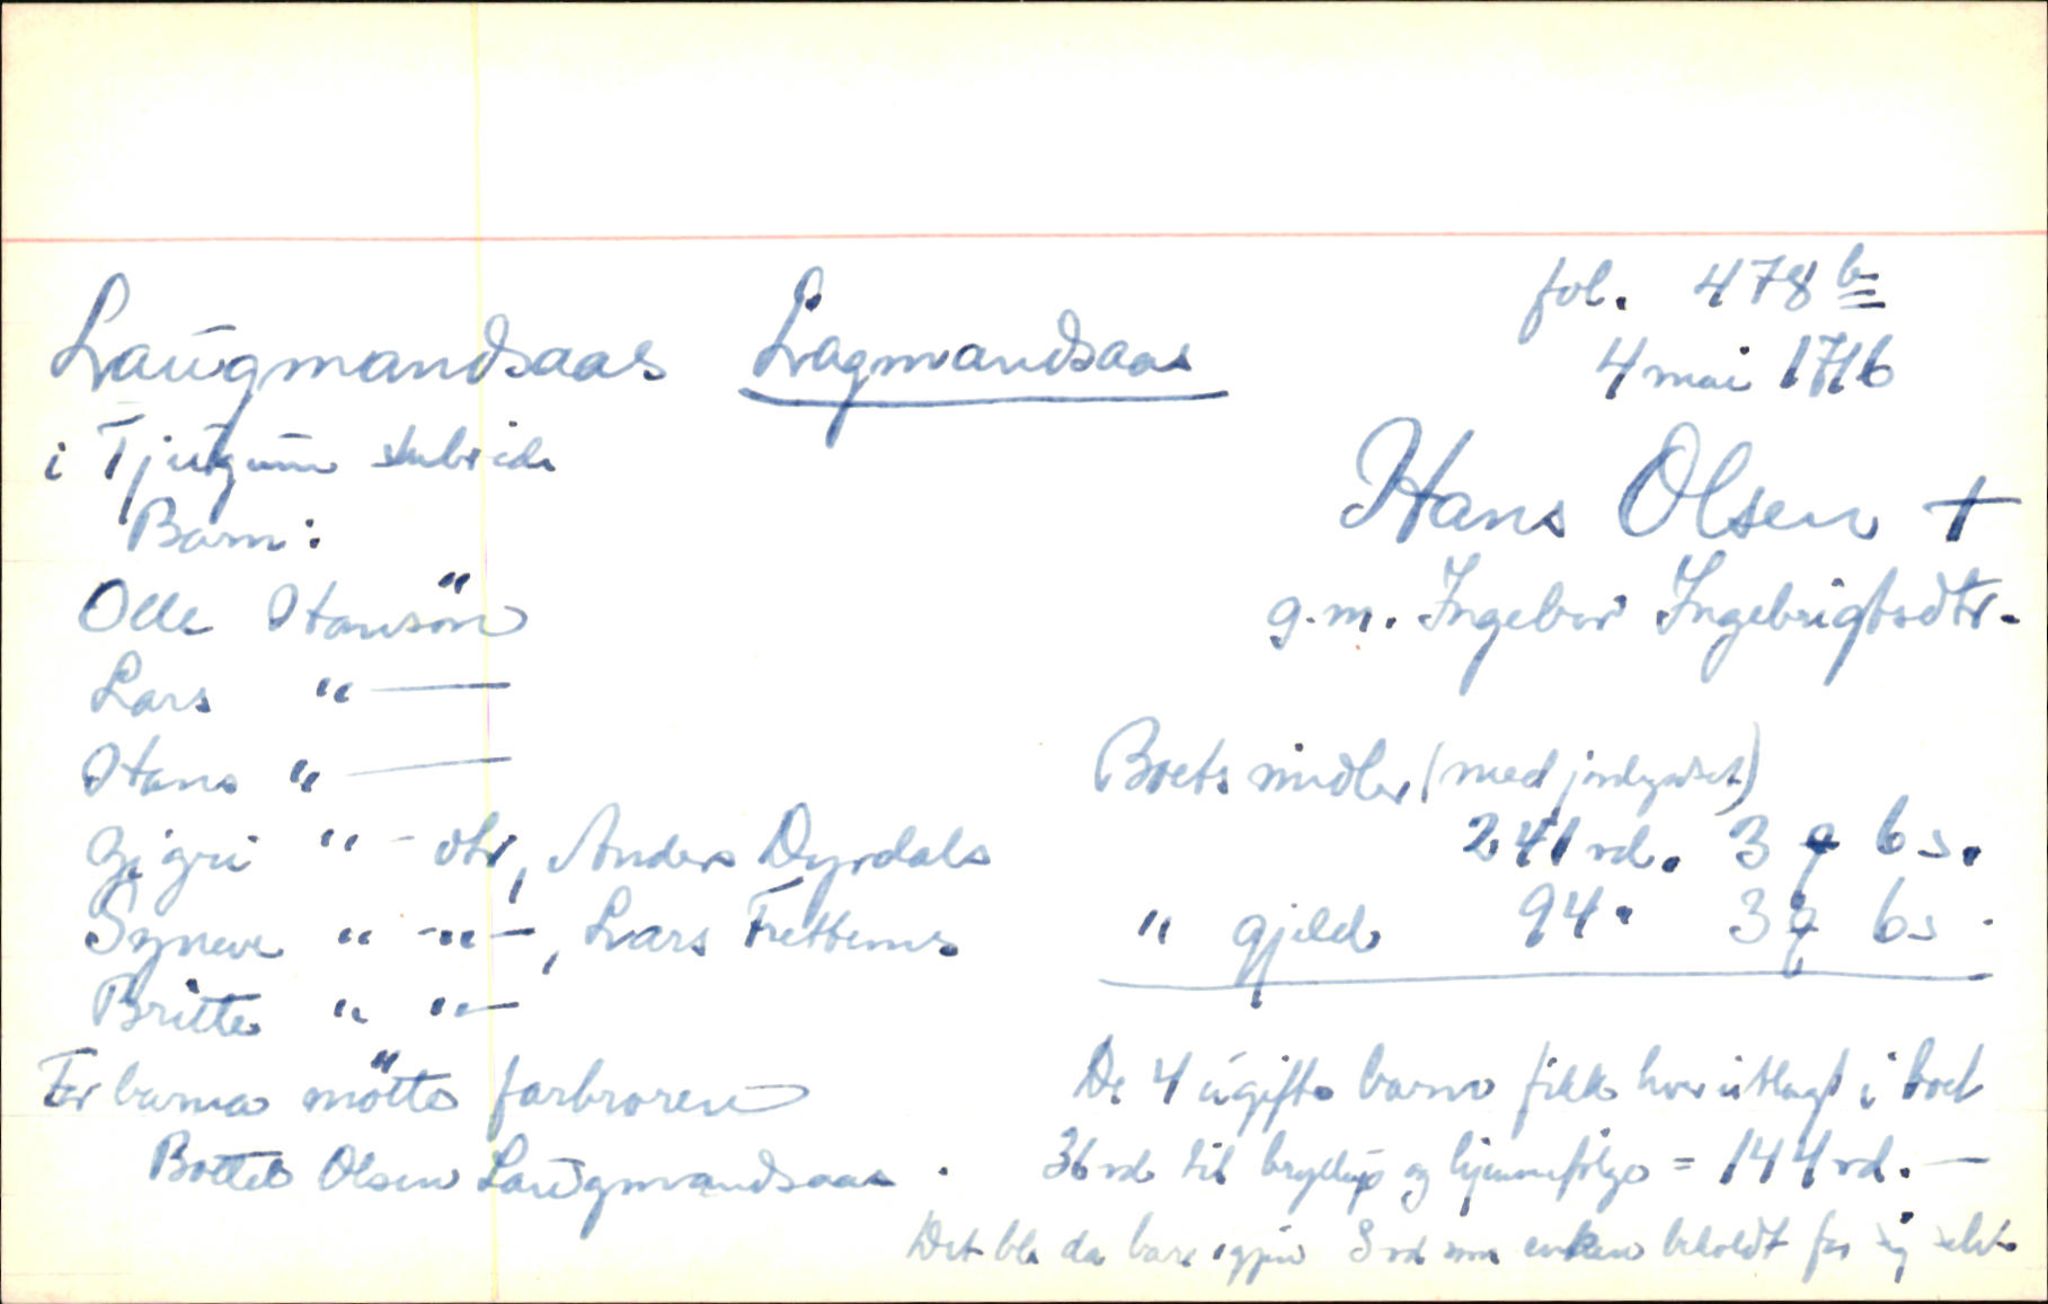 fol. 478 b
Laugmandsaas Lagmandsaas
4 mai 1716
i Tjugum skibrede
Hans Olsen †
Barn:
g.m. Ingebor Ingebrigtsdtr.
Olle Hansön
Lars " —
Hans " —
Boets midler (med jordegodset)
Zigri " - dtr, Anders Dyrdals
241 rd. 3 q 6 s.
Syneve " -"-, Lars Frettems
" gjeld 94. 3 q 6 s.
Britte " "-
For barna mötte farbroren
De 4 ugifte barn fikk hver utlagt i boet
Bottel Olsen Laugmandsaas.
36 rd til bryllup og hjemmefölge = 144 rd. —
Det ble da bare igjen 3 rd som enken beholdt for sig selv.